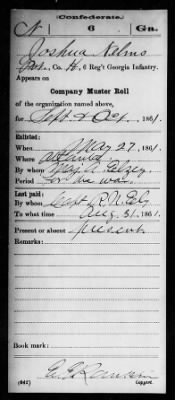 (Confederate.)
N 6 Ga.
Joshua Nelms
Pvt., Co. H, 6 Reg't Georgia Infantry.
Appears on
Company Muster Roll
of the organization named above,
for Sept & Oct, 1861.
Enlisted:
When May 27, 1861.
Where Atlanta
By whom Maj. A.
Period for the war
Last paid:
By whom Capt R. N. Ely
To what time Aug. 31, 1861.
Present or absent present
Remarks:
Book mark:
(642) Copyist.